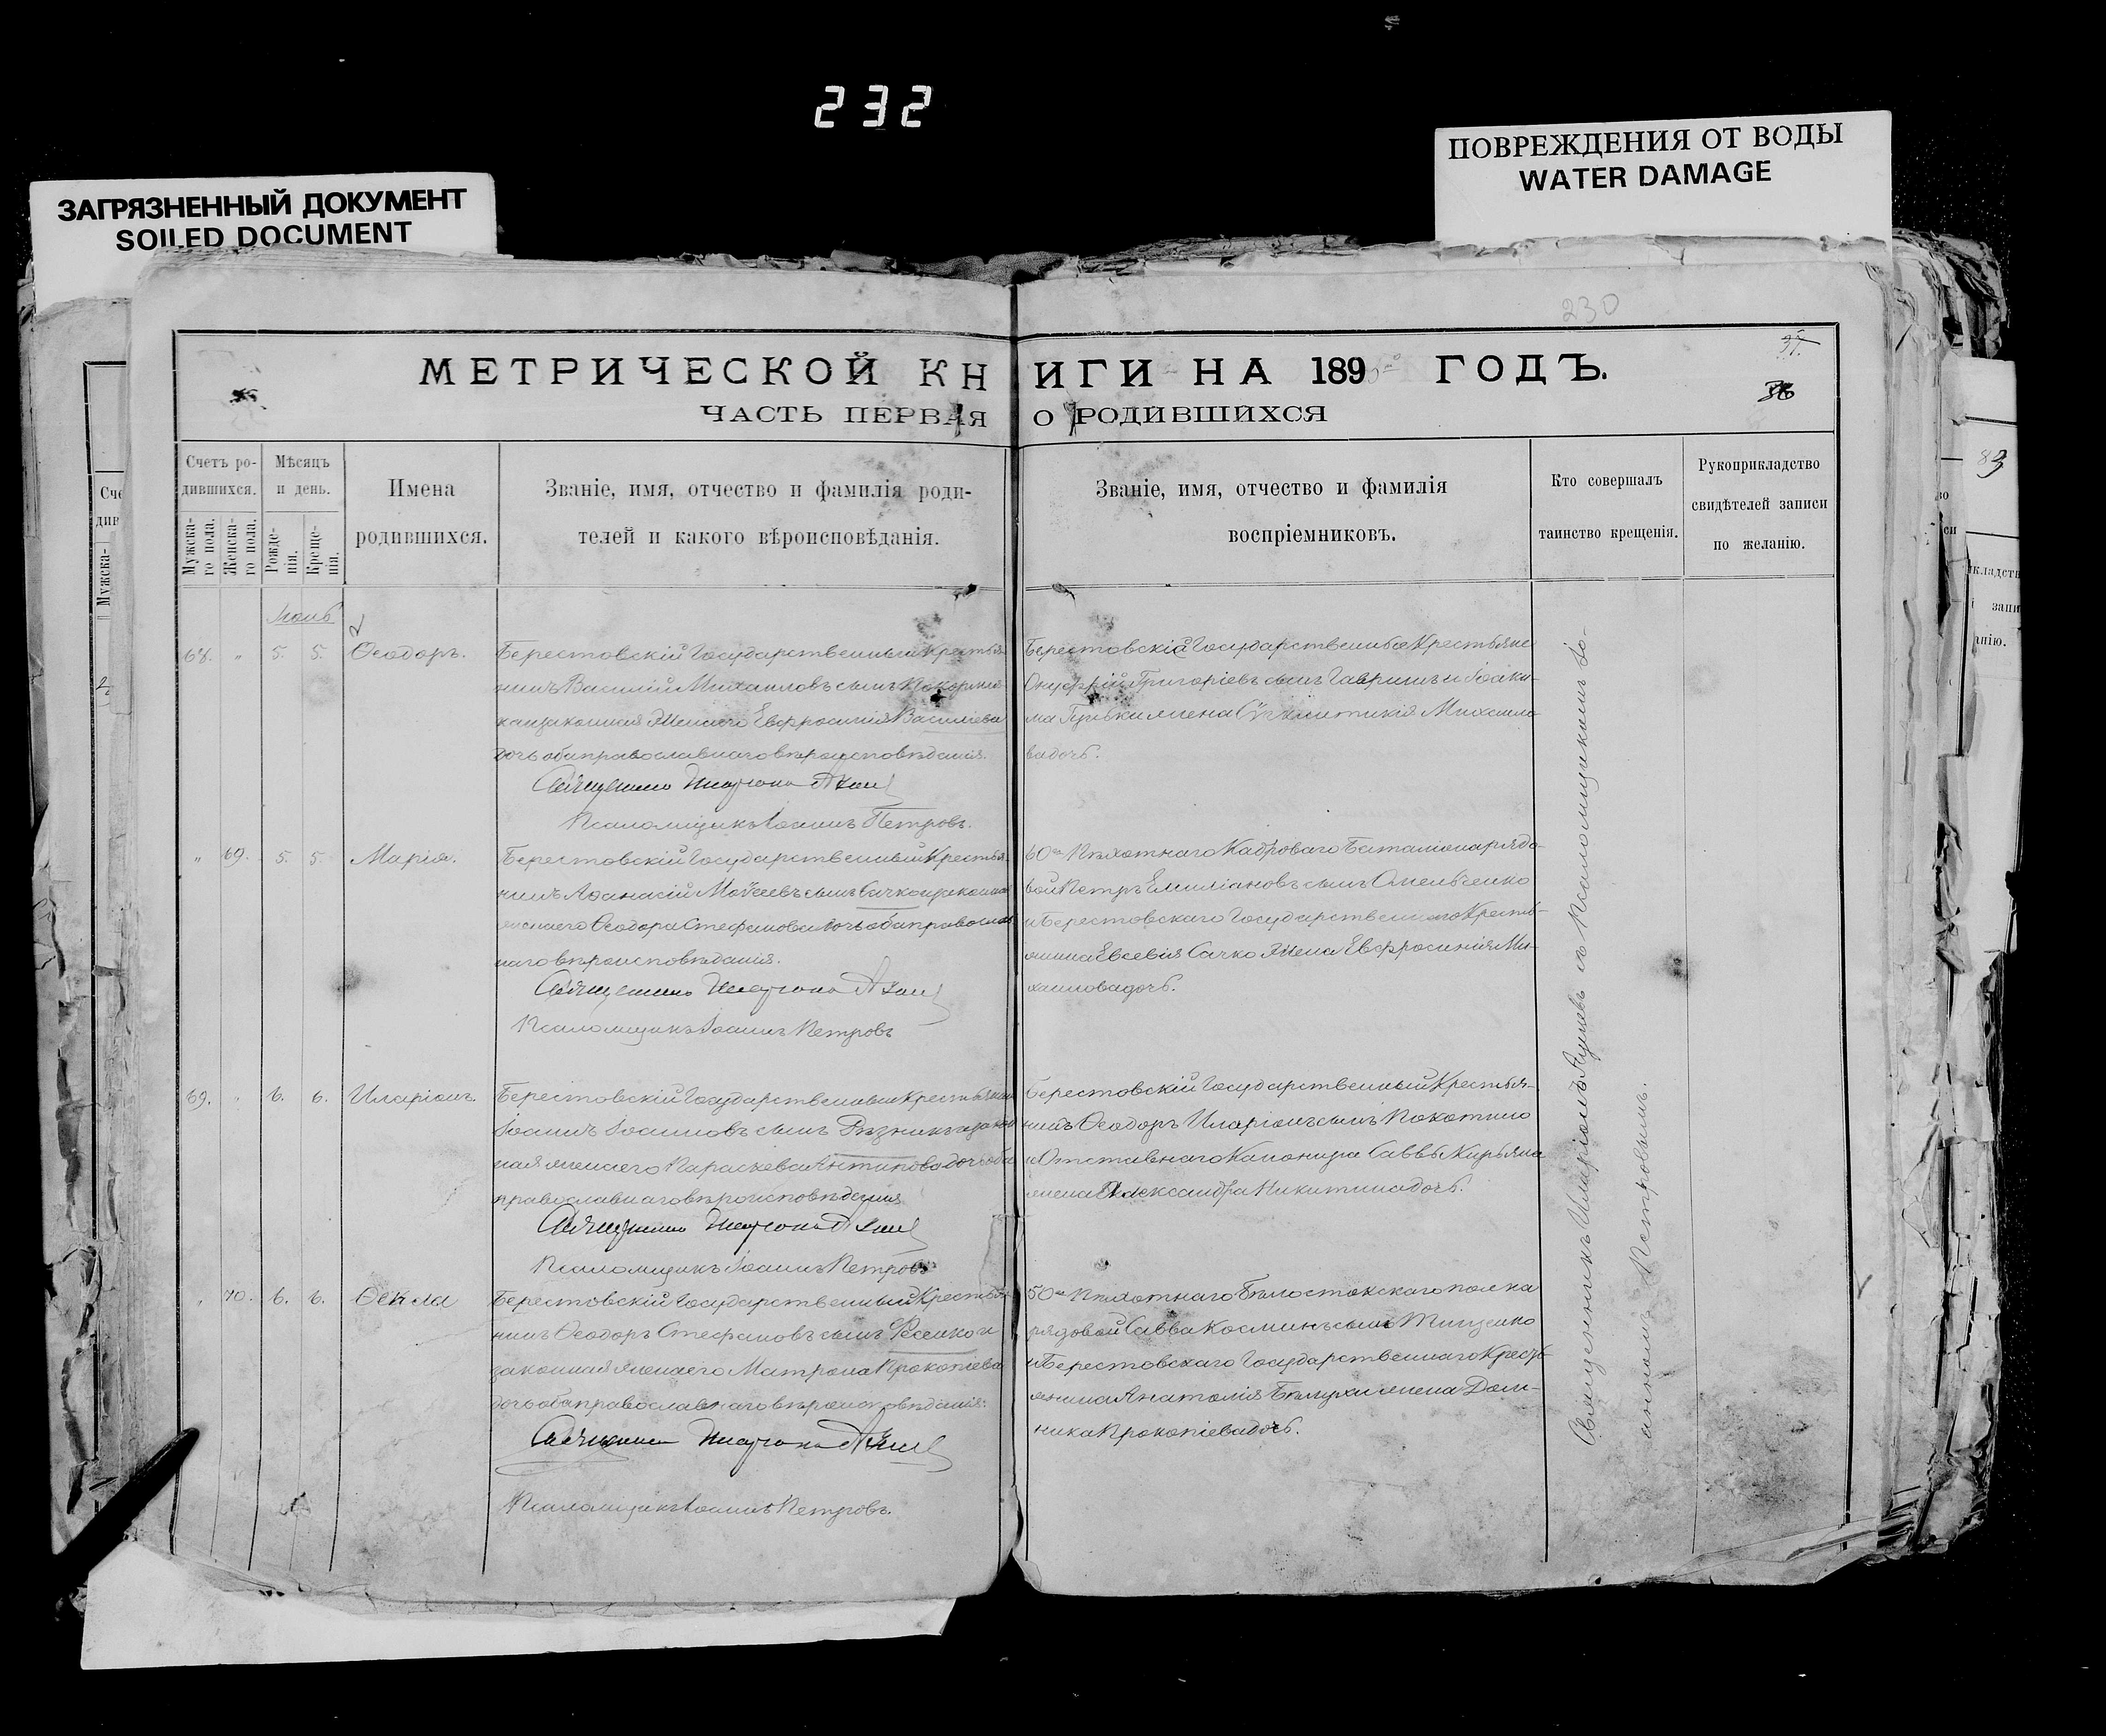 232
ЗАГРЯЗНЕННЫЙ ДОКУМЕНТ
SOILED DOCUMENT
ПОВРЕЖДЕНИЯ ОТ ВОДЫ
WATER DAMAGE
230
МЕТРИЧЕСКОЙ КНИГИ НА 189 ГОДЪ.
ЧАСТЬ ПЕРВАЯ О РОДИВШИХСЯ
36
Счетъ родившихся.
Мужскаго пола.
Женскаго пола.
Мѣсяцъ и день.
Рожденія.
Крещенія.
Имена
родившихся.
Званіе, имя, отчество и фамилія роди-
телей и какого вѣроисповѣданія.
Званіе, имя, отчество и фамилія
воспріемниковъ.
Кто совершалъ
таинство крещенія.
Рукоприкладство
свидѣтелей записи
по желанію.
68. " 5. 5. Ѳеодоръ.
Берестовскій Государственный Крестья
нинъ Василій Михаиловъ сынъ
законная жена его Евфросинія Василіева
дочь оба православнаго вѣроисповѣданія.
Священникъ
Псаломщикъ Іоаннъ Петровъ.
Берестовскій Государственные Крестьяне
Онуфрій Григоріевъ сынъ Гавришъ и Іоаки-
ма жена Михаило-
ва дочь.
" 69. 5. 5. Марія.
Берестовскій Государственный Крестья
нинъ Аѳанасій Моѵсеевъ сынъ Сачко и законная
жена его Ѳеодора Стефанова дочь оба православ
наго вѣроисповѣданія.
Священникъ
Псаломщикъ Іоаннъ Петровъ
60го Пѣхотнаго Кадроваго Баталіона рядо-
вой Петръ Емиліановъ сынъ Омельченко
и Берестовскаго Государственнаго Кресть-
янина Евсевія Сачко жена Евфросинія Ми-
хаилова дочь.
69. " 6. 6. Иларіонъ.
Берестовскій Государственный Крестьянинъ
Іоаннъ Іоанновъ сынъ Рѣзникъ и закон
ная жена его Параскева Антипова дочь оба
православнаго вѣроисповѣданія
Священникъ
Псаломщикъ Іоаннъ Петровъ
Берестовскій Государственный Крестья-
нинъ Ѳеодоръ Иларіонъ сынъ Покотило
и Отставнаго Канонира Саввы Кирьяна
жена Александра Никитина дочь.
" 70. 6. 6. Ѳекла
Берестовскій Государственный Крестья
нинъ Ѳеодоръ Стефановъ сынъ Фесенко и
законная жена его Матрона Прокопіева
дочь оба православнаго вѣроисповѣданія.
Священникъ
Псаломщикъ Іоаннъ Петровъ.
50го Пѣхотнаго Бѣлостокскаго полка
рядовой Савва Косминъ сынъ Тищенко
и Берестовскаго Государственнаго Кресть
янина Анатолія жена Дом-
ника Прокопіева дочь.
Священникъ Иларіонъ съ Псаломщикомъ Іо-
анномъ Петровымъ.